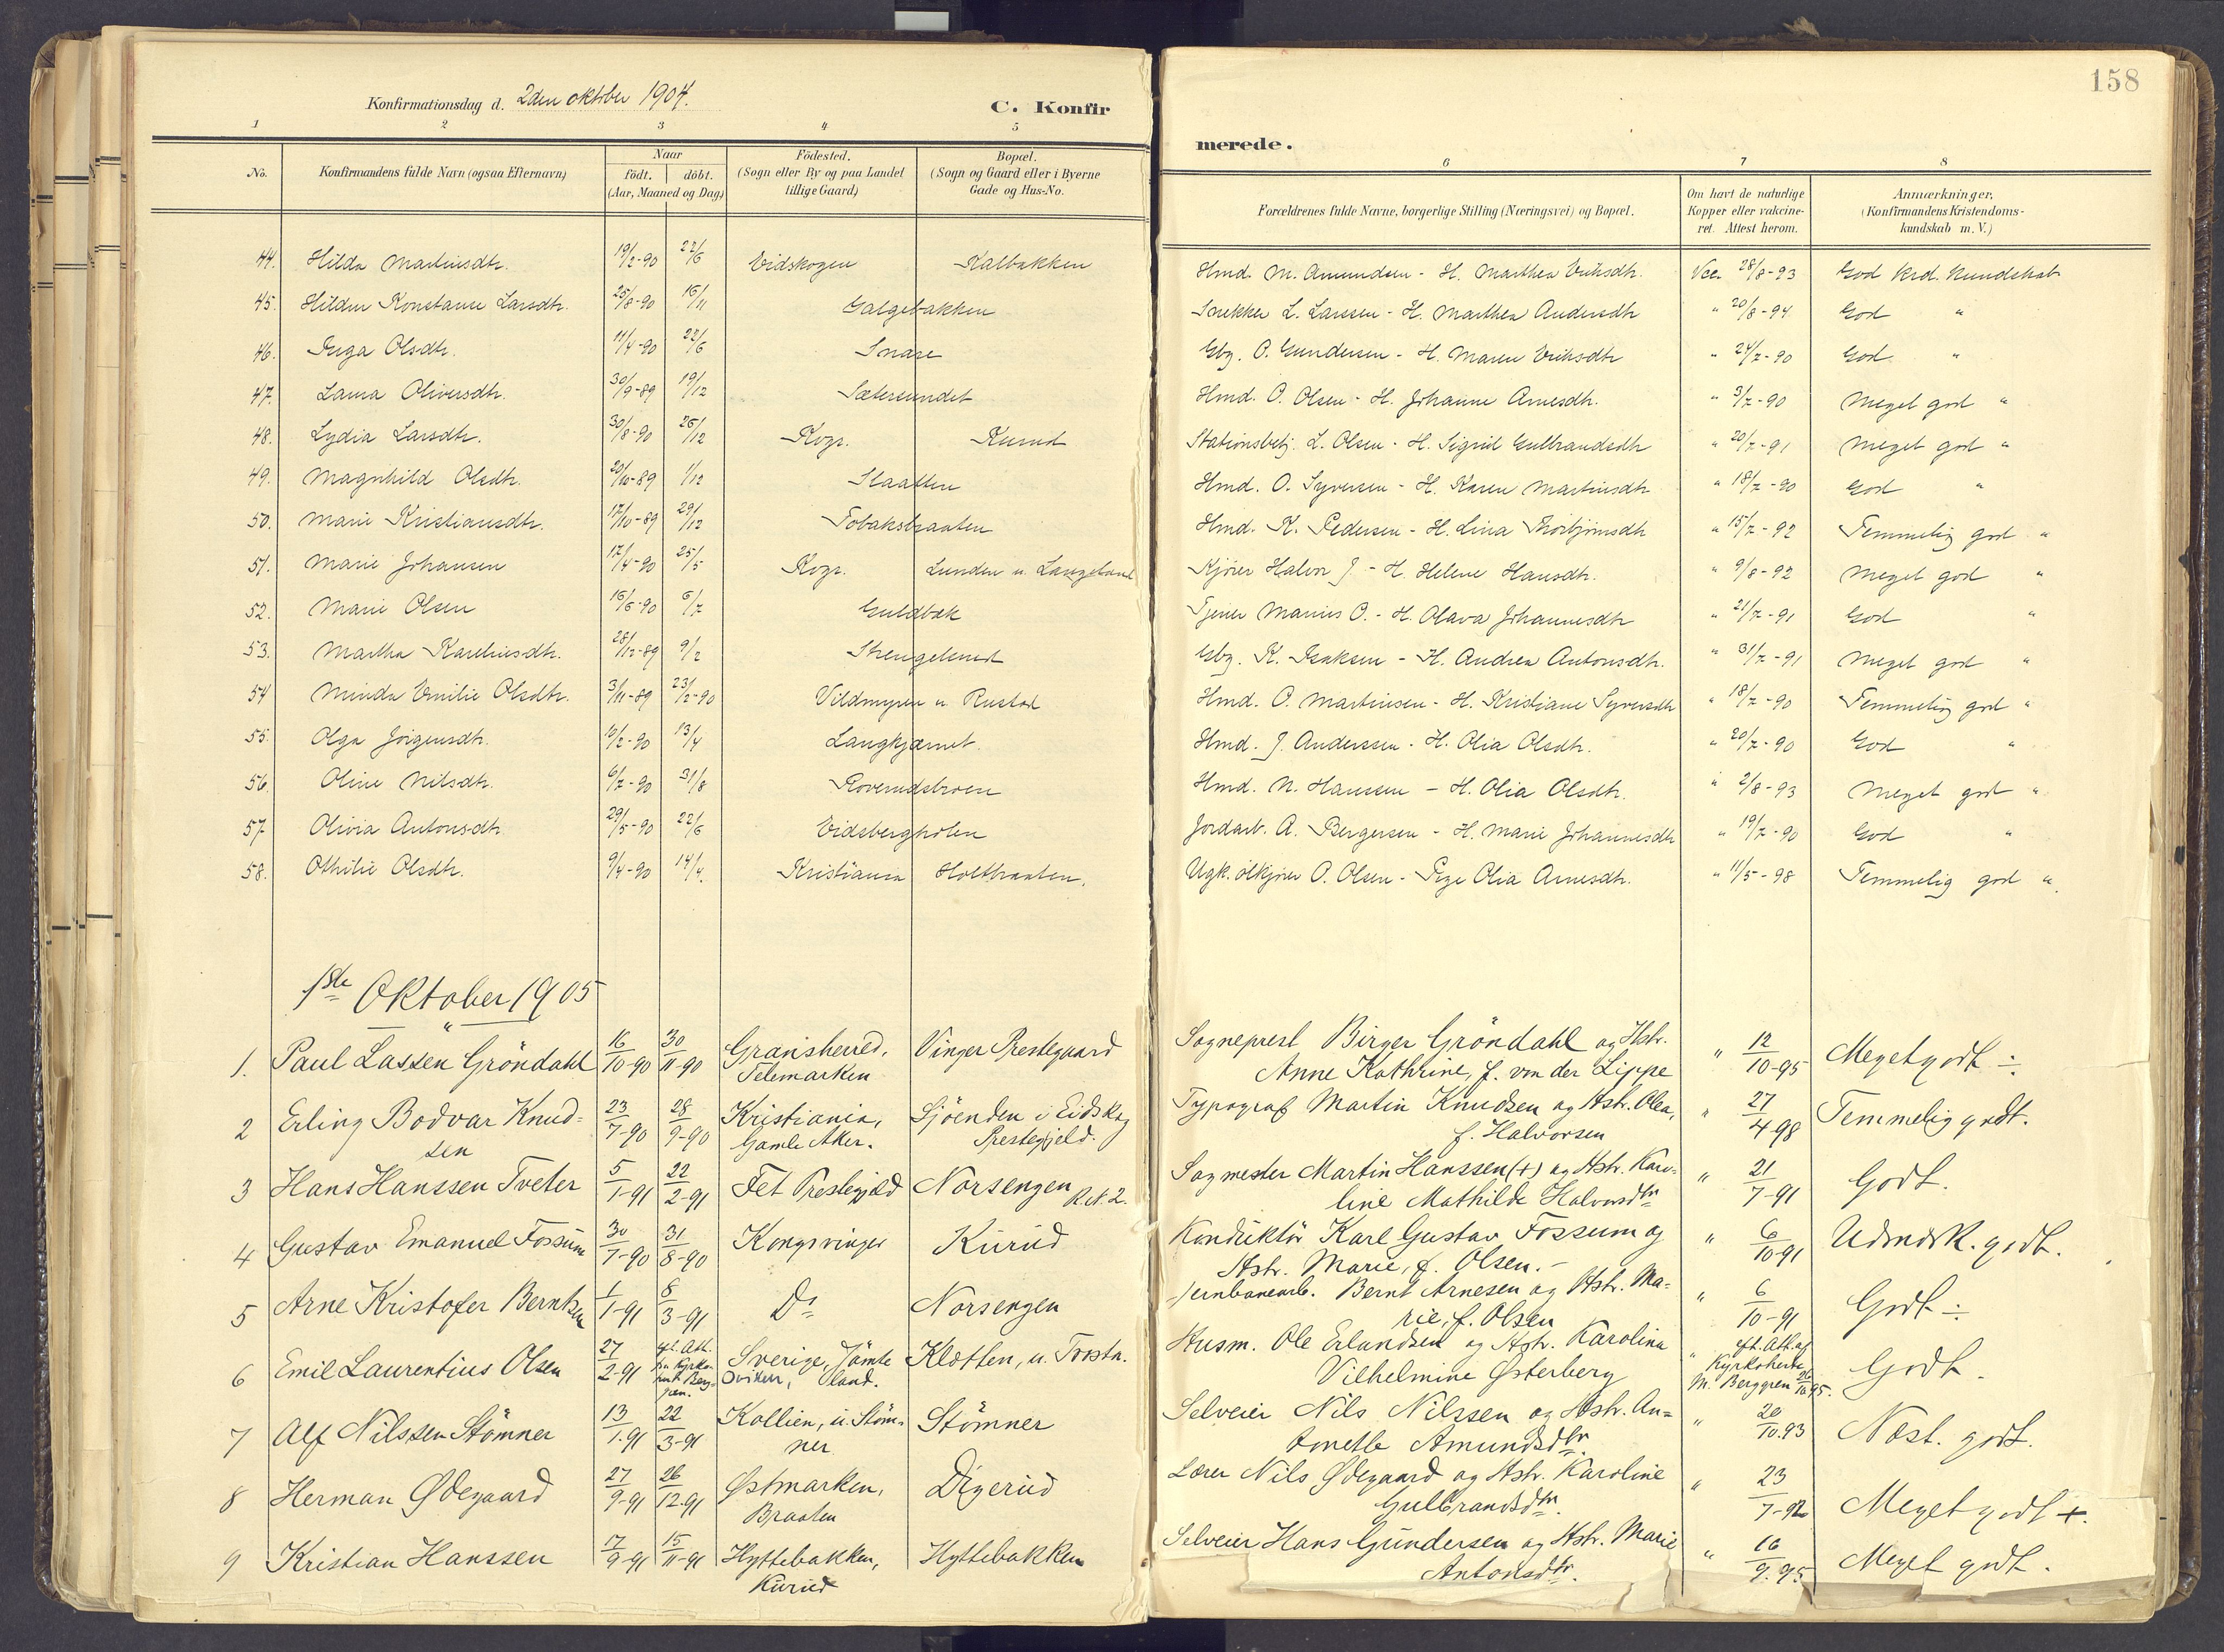 158
Konfirmationsdag d. 2den oktober 1904.
C. Konfir
merede.
1 2 3 4 5 6 7 8
No.
Konfirmandens fulde Navn (ogsaa Efternavn)
Naar
födt. döbt.
(Aar, Maaned og Dag)
Födested.
(Sogn eller By og paa Landet
tillige Gaard)
Bopæl.
(Sogn og Gaard eller i Byerne
Gade og Hus-No.
Forældrenes fulde Navne, borgerlige Stilling (Næringsvei) og Bopæl.
Om havt de naturlige
Kopper eller vakcine-
ret. Attest herom.
Anmærkninger,
(Konfirmandens Kristendoms-
kundskab m. V.)
44. Hilda Martinsdtr. 19/2-90 22/6 Eidskogen Kalbakken Hmd. M. Amundsen - H. Marthea Eriksdtr. Vcc. 28/8-93 God krd. kundskab
45. Hilden Konstance Larsdtr. 25/8-90 16/11 Galgebakken Snekker L. Larssen - H. Marthea Andersdtr " 20/8-94 God "
46. Inga Olsdtr. 11/4-90 22/6 Snare Gbg. O. Gundersen - H. Maren Eriksdtr " 24/7-90 God "
47. Laura Oliversdtr. 30/9-89 19/12 Sætersundet Hmd. O. Olsen - H. Johanne Arnesdtr. " 3/7-90 Meget god "
48. Lydia Larsdtr. 30/8-90 26/12 Kvgr. Kurud Stationsbetj. L. Olsen - H. Sigrid Gulbrandsdtr " 20/7-91 Meget god "
49. Magnhild Olsdtr. 20/10-89 1/12 Slaatten Hmd. O. Syversen - H. Karen Martinsdtr " 18/7-90 God "
50. Marie Kristiansdtr. 17/10-89 29/12 Tobaksbraaten Hmd. K. Pedersen - H. Lina Thorbjörnsdtr " 15/7-92 Temmelig god "
51. Marie Johansen 17/4-90 25/5 Kvgr. Lunden u. Langeland Kjörer Halvor J. - H. Helene Hansdtr. " 9/8-92 Meget god "
52. Marie Olsen 16/6-90 6/7 Guldbæk Tjener Marius O. - H. Olava Johannesdtr " 21/7-91 God "
53. Martha Kareliusdtr. 28/12-89 9/2 Strengelsrud Gbg. K. Isaksen - H. Andrea Antonsdtr. " 31/7-91 Meget god "
54 Minda Emilie Olsdtr. 3/11-89 23/2-90 Vildmyren u. Rustad Hmd. O. Martinsen - H. Kristiane Syversdtr " 18/7-90 Temmelig god "
55. Olga Jörgensdtr. 10/2-90 13/4 Langkjærnet. Hmd. J. Anderssen - H. Olia Olsdtr. " 20/7-90 God "
56. Oline Nilsdtr. 6/7-90 31/8 Roverudsbroen Hmd. N. Hanssen - H. Olia Olsdtr. " 2/8-93 Meget god "
57. Olivia Antonsdtr. 29/5-90 22/6 Eidsbergholen Jordarb. A. Bergersen - H. Marie Johannesdtr " 19/7-90 God "
58. Othilie Olsdtr. 9/4-90 14/4. Kristiania Holtbraaten. Ugk. ölkjörer O. Olsen - Pige Olia Arnesdtr. " 11/5-98 Temmelig god "
1ste Oktober 1905
1. Paul Lassen Gröndahl 16/10-90 30/11-90 Gransherred, Vinger Prestegaard Sogneprest Birger Gröndahl og Hstr. " 12/10-95 Meget godt ÷
Telemarken Anne Kathrine, f. von der Lippe
2 Erling Bodvar Knud- 23/7-90 28/9-90 Kristiania, Sjöenden i Eidskog Typograf Martin Knudsen og Hstr. Olea, " 27/4 98 Temmelig godt.
sen Gamle Aker. Prestegjeld. f. Halvorsen
3 Hans Hanssen Tveter 5/1-91 22/2-91 Fet Prestegjeld Norsengen R.N. 2. Sagmester Martin Hanssen (+) og Hstr. Karo- " 21/7-91 Godt.
line Mathilde Halvorsdtr
4 Gustav Emanuel Fossum 30/7-90 31/8-90 Kongsvinger Kurud Konduktör Karl Gustav Fossum og " 6/10-91 Udmærk. godt.
Hstr. Marie, f. Olsen.-
5 Arne Kristofer Berntsen 1/1-91 8/3-91 Do Norsengen Jernbanearb. Bernt Arnesen og Hstr. Ma- " 6/10-91 Godt ÷
rie, f. Olsen
6 Emil Laurentius Olsen 27/2-91 Sverige, Jämte Kletten, u. Trøstn. Husm. Ole Erlandsen og Hstr. Karolina " eft. Att. af Godt.
Oviken, land. Vilhelmine Østerberg Kyrkoherde
M. Berggren 26/10 95.
7 Alf Nilssen Stömner 13/1-91 22/3-91 Kollien, u. Stöm- Stömner Selveier Nils Nilssen og Hstr. An- " 20/10.93 Næst. godt.
ner tonette Amundsdtr.
8 Herman Ødegaard 27/9-91 26/12-91 Østmarken, Digerud Lærer Nils Ødegaard og Hstr. Karoline " 23/7-92 Meget godt +.
Braaten Gulbrandsdtr.
9 Kristian Hanssen 17/9-91 15/11-91 Hyttebakken, Hyttebakken Selveier Hans Gundersen og Hstr. Marie " 16/9.95 Meget godt.
Kurud Antonsdtr.